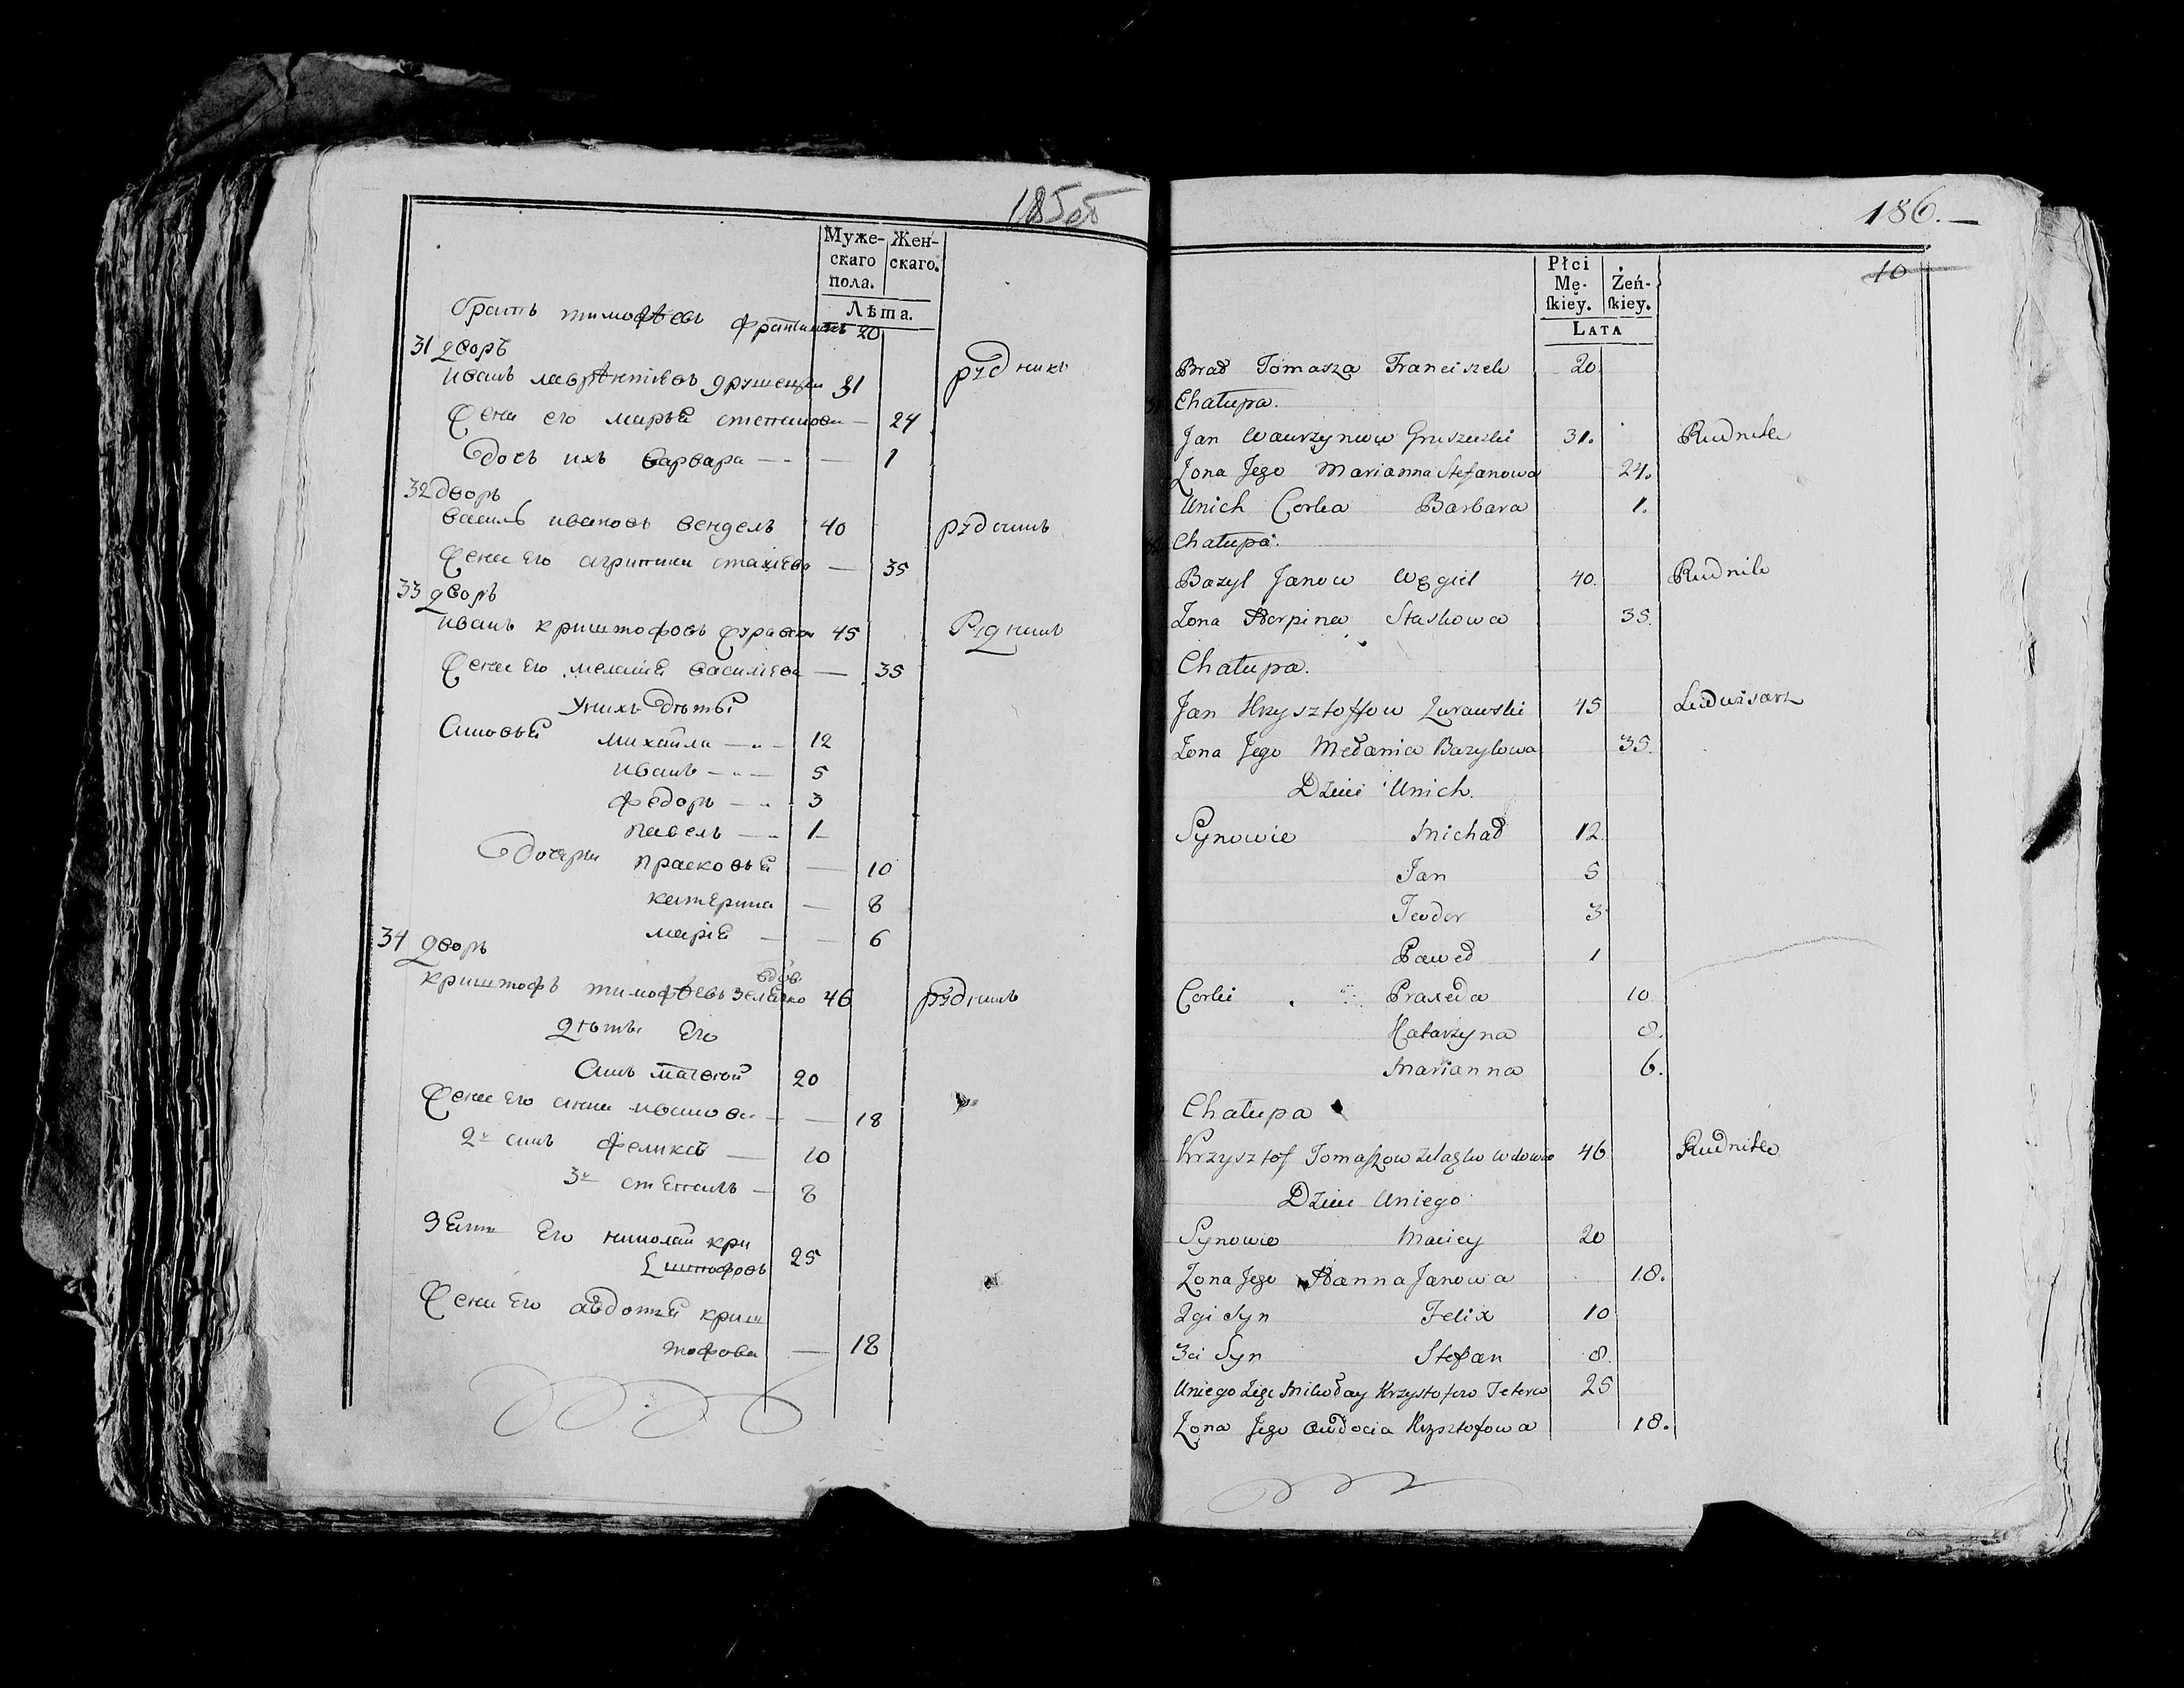 185 об
Муже-
скаго
пола.
Жен-
скаго.
Лѣта.
братъ тимофѣевъ францишекъ 20
31 дворъ
иванъ лаврѣнтіевъ грушецки 31 рудникъ
жена его марья степанова — 24
дочь ихъ варвара — — 1
32 дворъ
василь ивановъ вендель 40 рудникъ
жена его агрипина стахіева — 35
33 дворъ
иванъ криштофовъ журавски 45 рудникъ
жена его меланія василіева — 35
у них дѣты
синовья михайла — 12
иванъ — 5
федоръ — 3
павелъ — 1
дочери прасковья — 10
катерина — 8
марія — — 6
34 дворъ
вдов
криштофъ тимофѣевъ зелязко 46 рудникъ
дѣты его
синъ матвѣй 20
жена его анна иванова — — 18
2й синъ феликсъ — 10
3й степанъ — 8
зять его николай кри
штофовъ 25
жена его авдотья криш
тофова — 18
186.—
10
Płci
Mę-
skiey.
Żeń-
skiey.
LATA
Brat Tomasza Franciszek 20
Chałupa.
Jan Wawrzynców Gruszecki 31. Rudnik
Zona Jego Marianna Stefanowa 24.
Unich Corka Barbara 1.
Chałupa.
Bazyl Janow Węgiel 40. Rudnik
Zona Harpina Stashowa 35.
Chałupa.
Jan Krzysztoffow Zurawski 45 Ludwisarz
Zona Jego Mełania Bazylowa 35.
Dzieci Unich.
Synowie Michał 12
Jan 5
Teodor 3
Paweł 1
Corki Praxeda 10
Katarzyna 8.
Marianna 6.
Chałupa
Krzysztof Tomaszow Zelazko wdowiec 46 Rudnik
Dzieci Uniego
Synowie Maciey 20
Zona Jego Hanna Janowa 18.
2gi Syn Felix 10
3ci Syn Stefan 8.
Uniego Zięć Mikołay Krzysztofow 25
Zona Jego Awdocia Krzysztofowa 18.